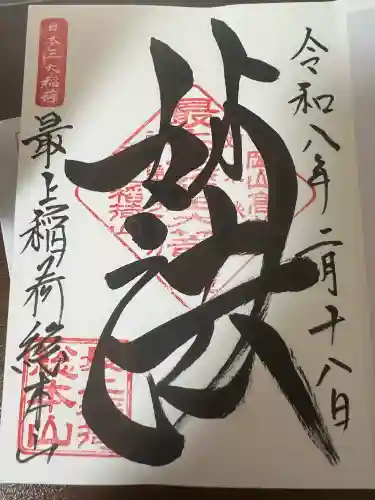 令和八年二月十八日
妙法
日本三大稲荷
最上稲荷総本山
最上稲荷
総本山